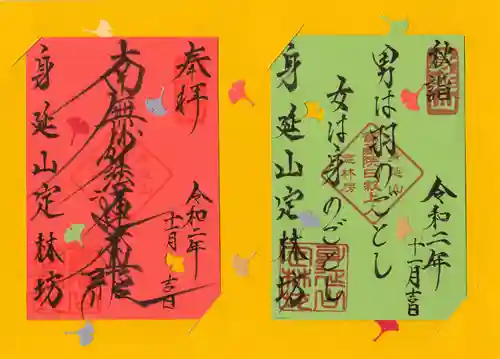 奉拝
南無妙法蓮華経
令和二年
十一月吉日
身延山定林坊
秋詣
男は羽のごとし
女は身のごとし
令和二年
十一月吉日
身延山定林坊